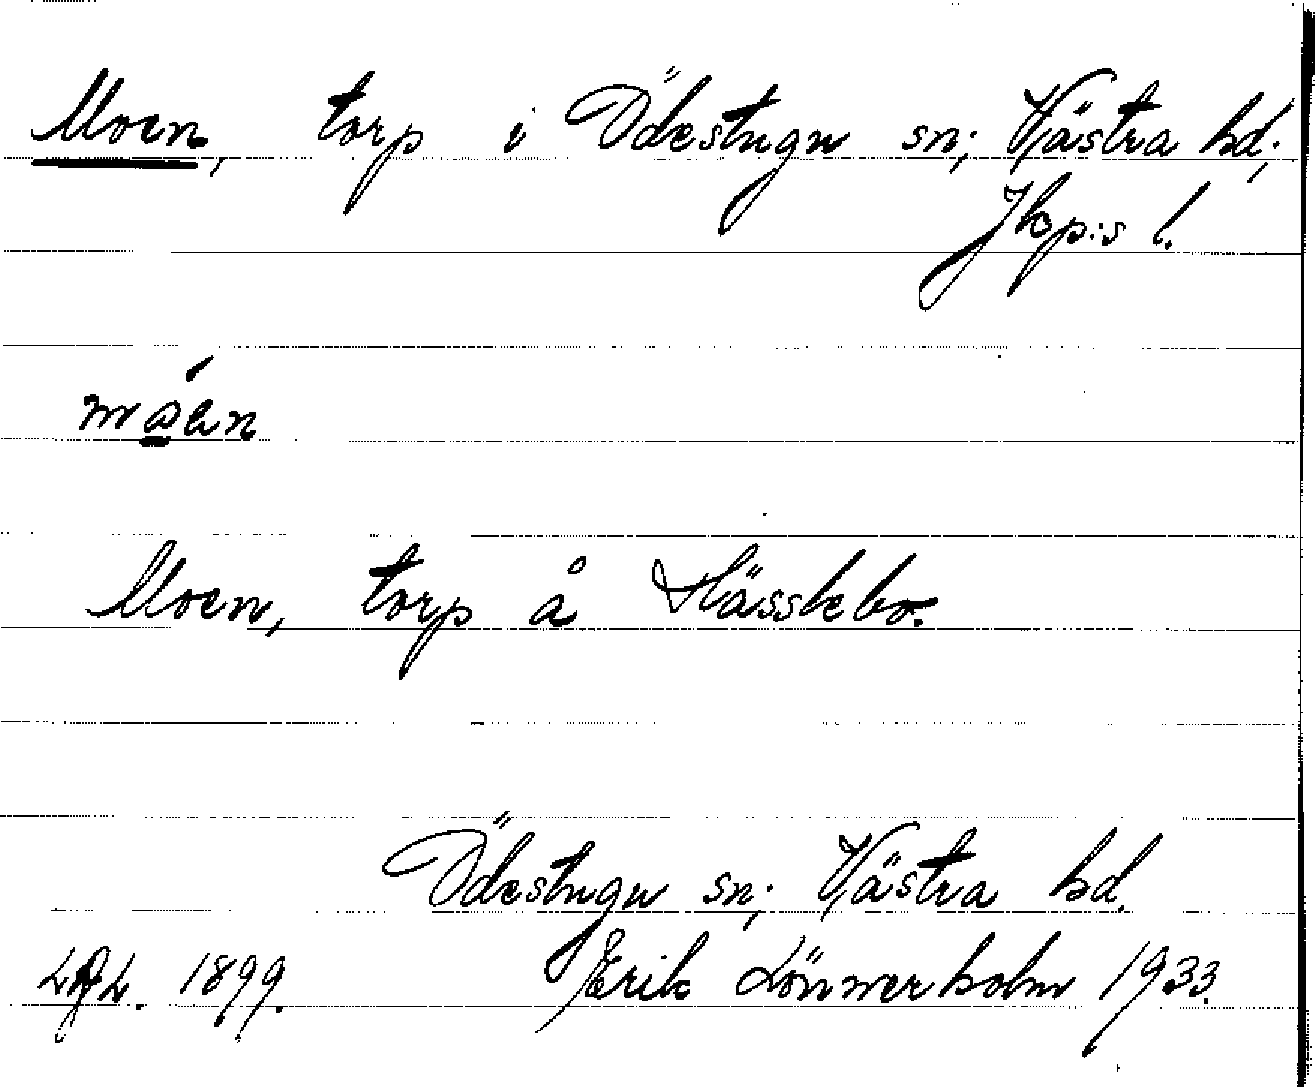 Moen, torp i Ödestugu sn; Västra hd;
Jkp:s l.
Moen, torp å Hässlebo.
Ödestugu sn; Västra hd.
1899. Erik Lönnerholm 1933